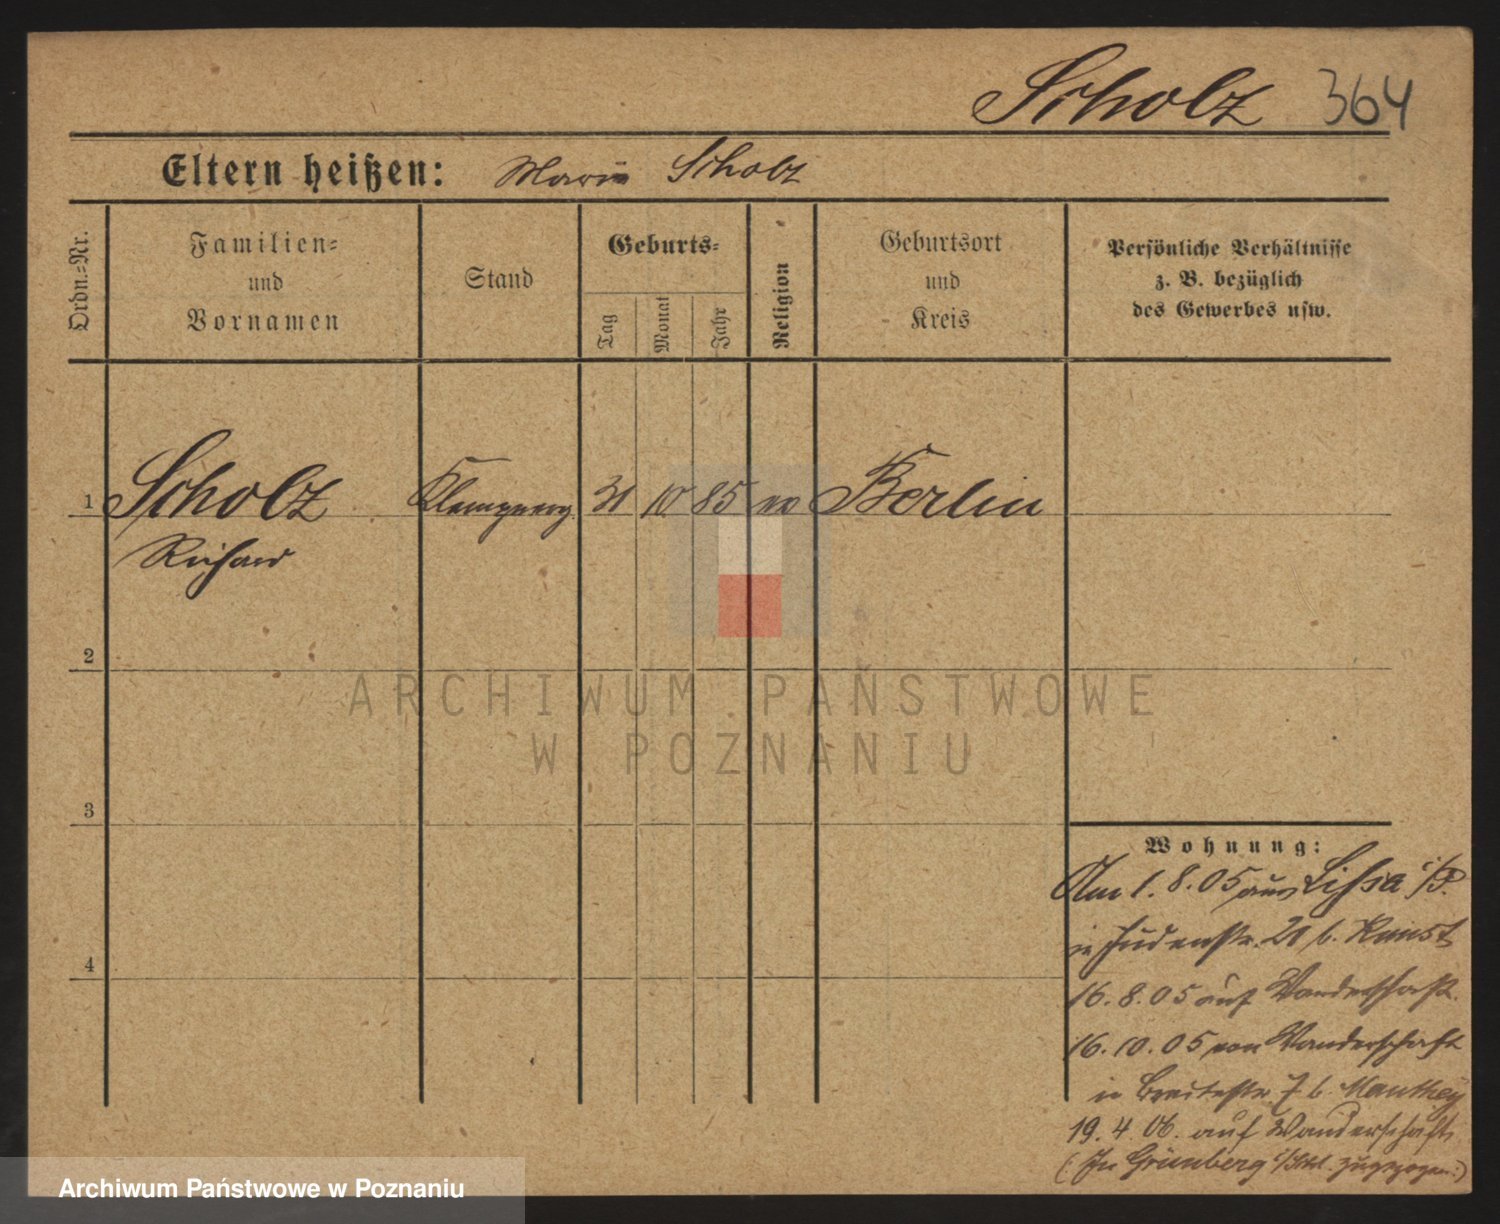 Scholz 364
Eltern heißen: Marie Scholz
Ordn.-Nr.
Familien-
und
Vornamen
Stand
Geburts-
Tag
Monat
Jahr
Religion
Geburtsort
und
Kreis
Persönliche Verhältnisse
z. B. bezüglich
des Gewerbes usw.
1 Scholz 31 10 85 Berlin
Richard
2
3
4
Wohnung:
Am 1. 8. 05 aus Lissa i/P.
in Judenstr. 20 b.
16. 8. 05 auf Wanderschaft.
16. 10. 05 von Wanderschaft
in Breitestr. 7 b. Manthey
19. 4. 06. auf Wanderschaft
(In Grünberg i/Schl. zugezogen.)
ARCHIWUM PAŃSTWOWE
W POZNANIU
Archiwum Państwowe w Poznaniu